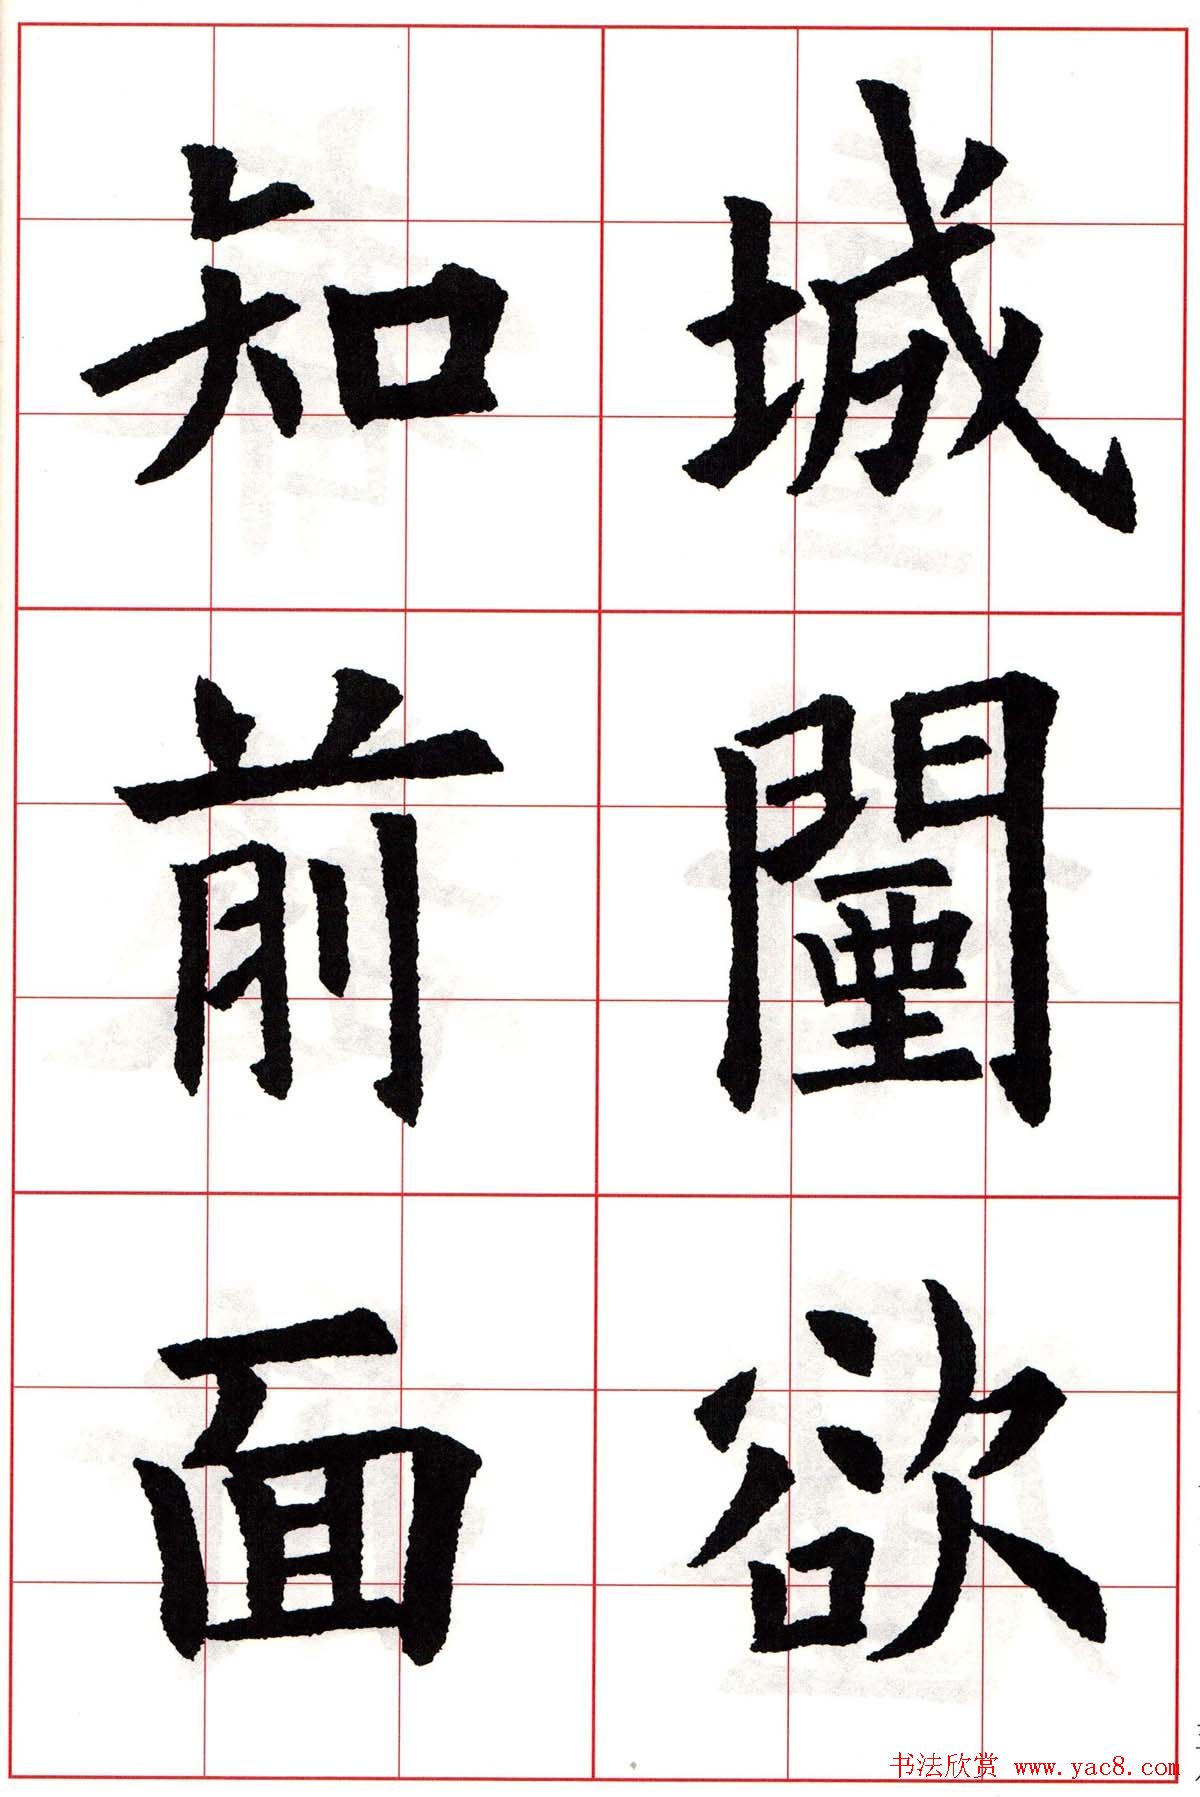 城闉欲
知前面
书法欣赏 www.yac8.com